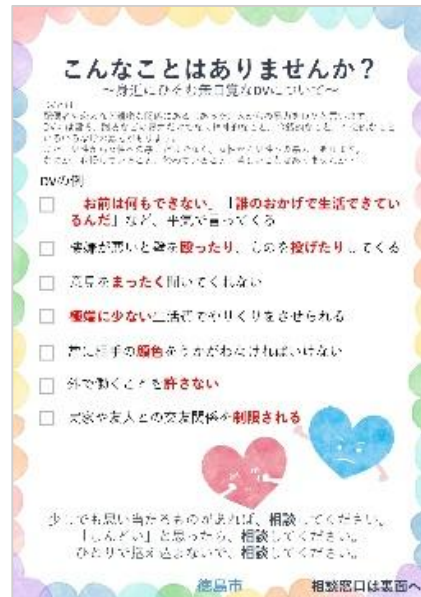 こんなことはありませんか？
～身近にひそむ無自覚なDVについて～
DVとは
DVの例
「お前は何もできない」「誰のおかげで生活できてい
るんだ」など、平気で言ってくる
機嫌が悪いと壁を殴ったり、ものを投げたりしてくる
意見をまったく聞いてくれない
極端に少ない生活費でやりくりをさせられる
常に相手の顔色をうかがわなければいけない
外で働くことを許さない
実家や友人との交友関係を制限される
少しでも思い当たるものがあれば、相談してください。
「しんどい」と思ったら、相談してください。
ひとりで抱え込まないで、相談してください。
徳島市
相談窓口は裏面へ